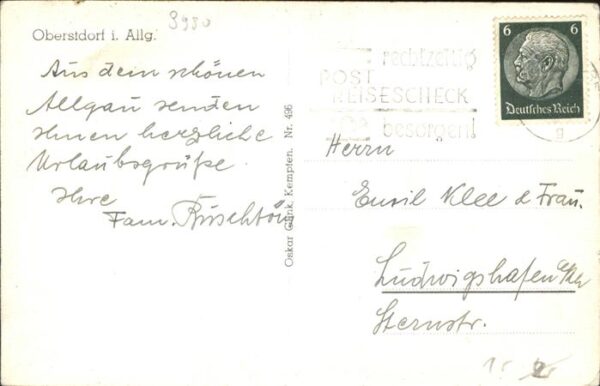 3980
Oberstdorf i. Allg.
Aus dem schönen
Allgäu senden
Ihnen herzliche
Urlaubsgrüße.
Ihre
Fam.
Oskar Kempten. Nr. 496
rechtzeitig
POST
REISESCHECK
besorgen!
6 6
Deutsches Reich
g
Herrn
Emil Klee & Frau.
Ludwigshafen a/Rh
Sternstr.